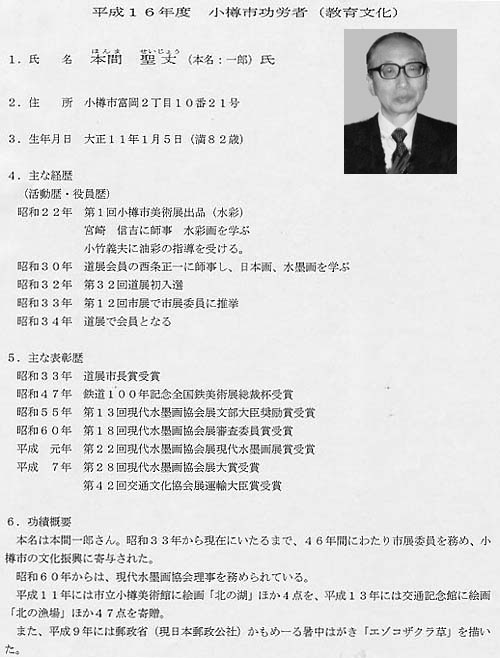 平成１６年度　小樽市功労者（教育文化）
ほんま　せいじょう
１．氏　　名　本間　聖丈（本名：一郎）氏
２．住　　所　小樽市富岡２丁目１０番２１号
３．生年月日　大正１１年１月５日（満８２歳）
４．主な経歴
（活動歴・役員歴）
昭和２２年　第１回小樽市美術展出品（水彩）
宮崎　信吉に師事　水彩画を学ぶ
小竹義夫に油彩の指導を受ける。
昭和３０年　道展会員の西条正一に師事し、日本画、水墨画を学ぶ
昭和３２年　第３２回道展初入選
昭和３３年　第１２回市展で市展委員に推挙
昭和３４年　道展で会員となる
５．主な表彰歴
昭和３３年　道展市長賞受賞
昭和４７年　鉄道１００年記念全国鉄美術展総裁杯受賞
昭和５５年　第１３回現代水墨画協会展文部大臣奨励賞受賞
昭和６０年　第１８回現代水墨画協会展審査委員賞受賞
平成　元年　第２２回現代水墨画協会展現代水墨画展賞受賞
平成　７年　第２８回現代水墨画協会展大賞受賞
第４２回交通文化協会展運輸大臣賞受賞
６．功績概要
本名は本間一郎さん。昭和３３年から現在にいたるまで、４６年間にわたり市展委員を務め、小
樽市の文化振興に寄与された。
昭和６０年からは、現代水墨画協会理事を務められている。
平成１１年には市立小樽美術館に絵画「北の湖」ほか４点を、平成１３年には交通記念館に絵画
「北の漁場」ほか４７点を寄贈。
また、平成９年には郵政省（現日本郵政公社）かもめーる暑中はがき「エゾコザクラ草」を描い
た。